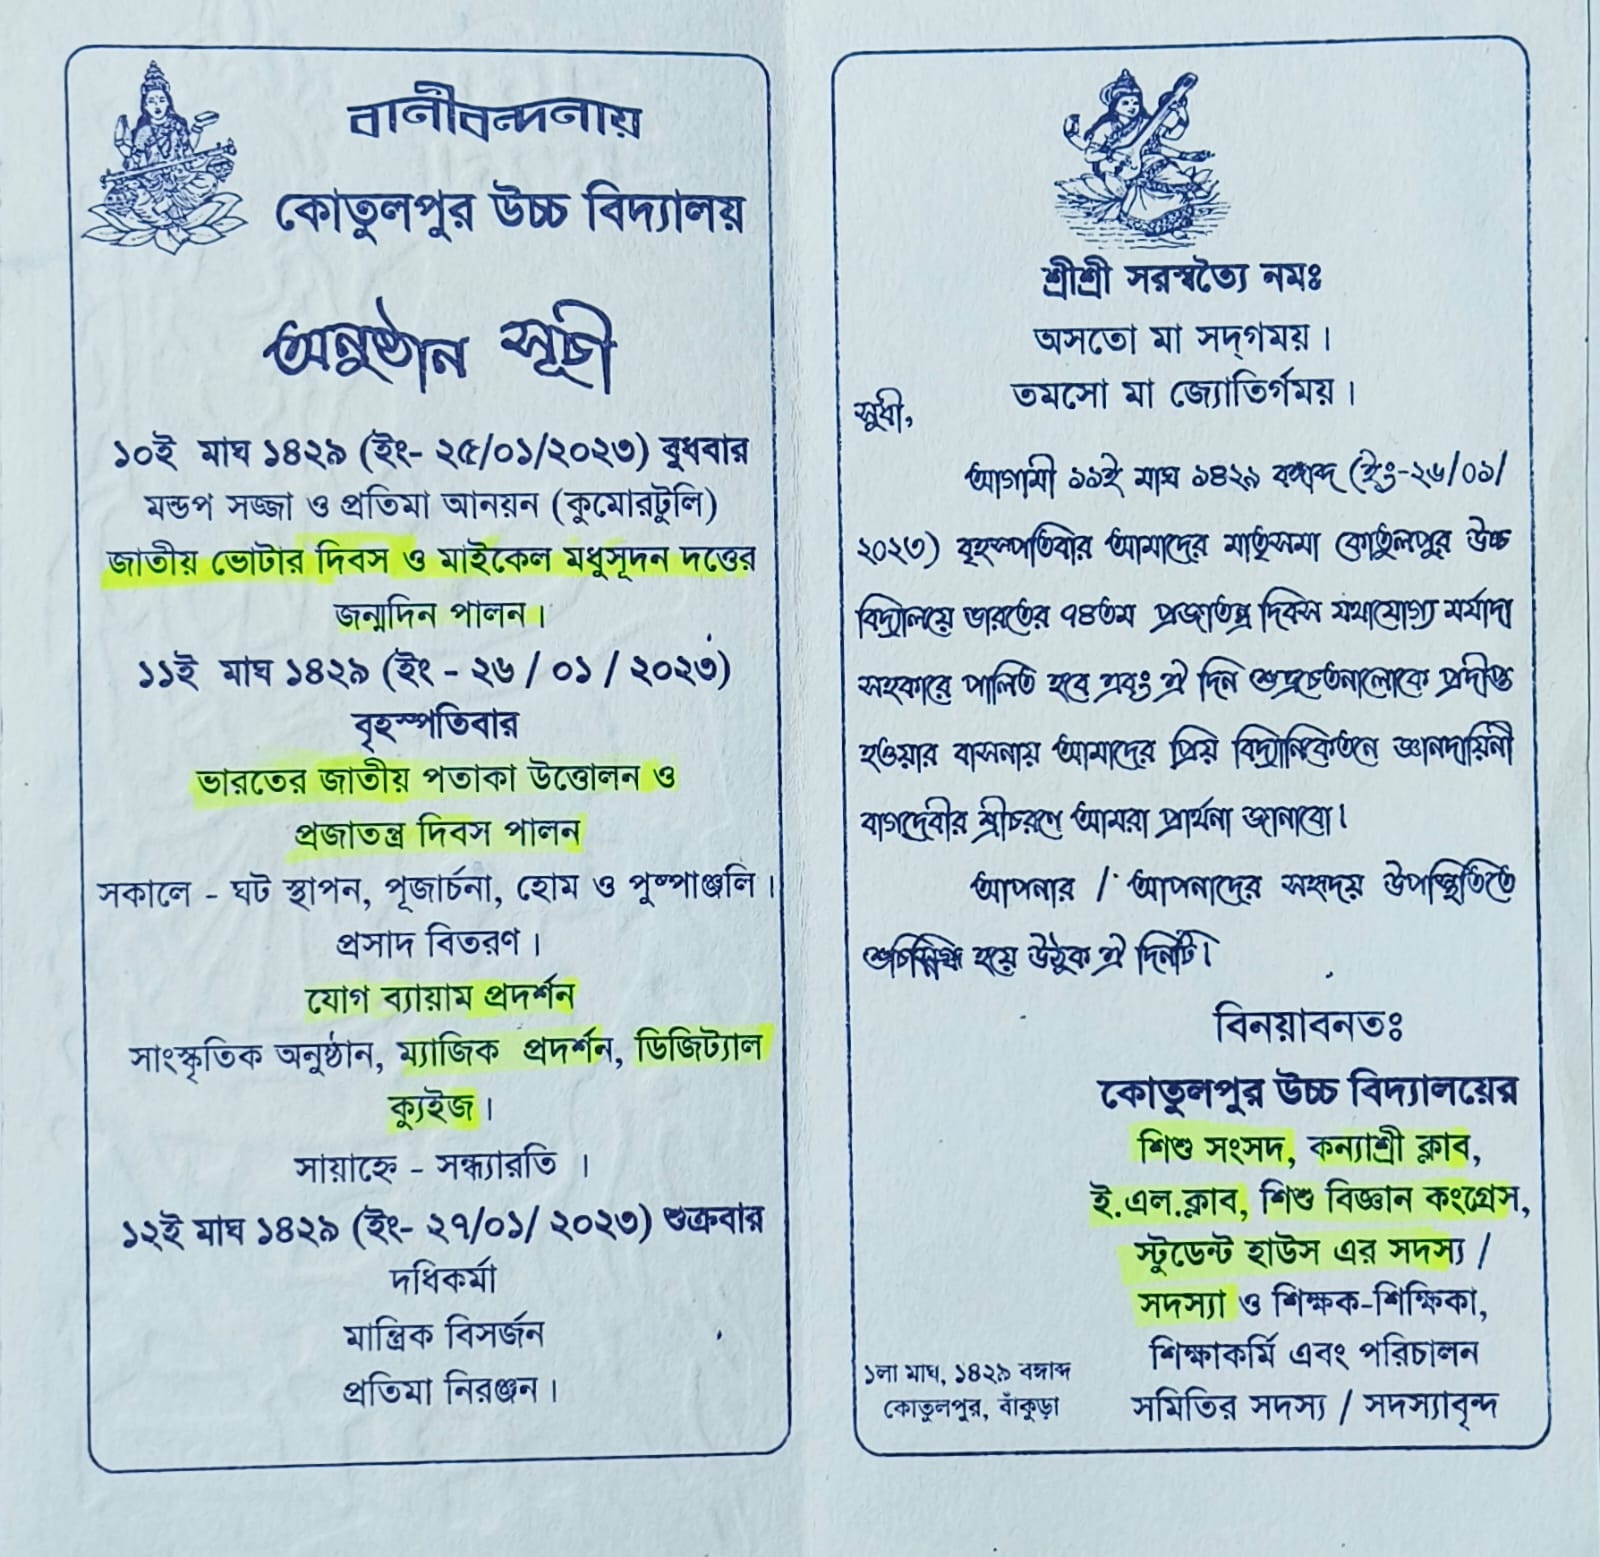 বাণীবন্দনায়
কোতুলপুর উচ্চ বিদ্যালয়
অনুষ্ঠান সূচী
১০ই মাঘ ১৪২৯ (ইং- ২৫/০১/২০২৩) বুধবার
মন্ডপ সজ্জা ও প্রতিমা আনয়ন (কুমোরটুলি)
জাতীয় ভোটার দিবস ও মাইকেল মধুসূদন দত্তের
জন্মদিন পালন।
১১ই মাঘ ১৪২৯ (ইং - ২৬ / ০১ / ২০২৩)
বৃহস্পতিবার
ভারতের জাতীয় পতাকা উত্তোলন ও
প্রজাতন্ত্র দিবস পালন
সকালে - ঘট স্থাপন, পূজার্চনা, হোম ও পুষ্পাঞ্জলি।
প্রসাদ বিতরণ।
যোগ ব্যায়াম প্রদর্শন
সাংস্কৃতিক অনুষ্ঠান, ম্যাজিক প্রদর্শন, ডিজিট্যাল
ক্যুইজ।
সায়াহ্নে - সন্ধ্যারতি ।
১২ই মাঘ ১৪২৯ (ইং- ২৭/০১/ ২০২৩) শুক্রবার
দধিকর্মা
মান্ত্রিক বিসর্জন
প্রতিমা নিরঞ্জন।
শ্রীশ্রী সরস্বত্যৈ নমঃ
অসতো মা সদ্‌গময়।
তমসো মা জ্যোতির্গময়।
সুধী,
আগামী ১১ই মাঘ ১৪২৯ বঙ্গাব্দ (ইং-২৬/০১/
২০২৩) বৃহস্পতিবার আমাদের মাতৃসমা কোতুলপুর উচ্চ
বিদ্যালয়ে ভারতের ৭৪তম প্রজাতন্ত্র দিবস যথাযোগ্য মর্যাদা
সহকারে পালিত হবে এবং ঐ দিন শুভ্রচেতনালোকে প্রদীপ্ত
হওয়ার বাসনায় আমাদের প্রিয় বিদ্যানিকেতনে জ্ঞানদায়িনী
বাগদেবীর শ্রীচরণে আমরা প্রার্থনা জানাবো।
আপনার / আপনাদের সহৃদয় উপস্থিতিতে
শুচিস্নিগ্ধ হয়ে উঠুক ঐ দিনটি।
বিনয়াবনতঃ
কোতুলপুর উচ্চ বিদ্যালয়ের
শিশু সংসদ, কন্যাশ্রী ক্লাব,
ই.এল.ক্লাব, শিশু বিজ্ঞান কংগ্রেস,
স্টুডেন্ট হাউস এর সদস্য /
সদস্যা ও শিক্ষক-শিক্ষিকা,
শিক্ষাকর্মি এবং পরিচালন
সমিতির সদস্য / সদস্যাবৃন্দ
১লা মাঘ, ১৪২৯ বঙ্গাব্দ
কোতুলপুর, বাঁকুড়া